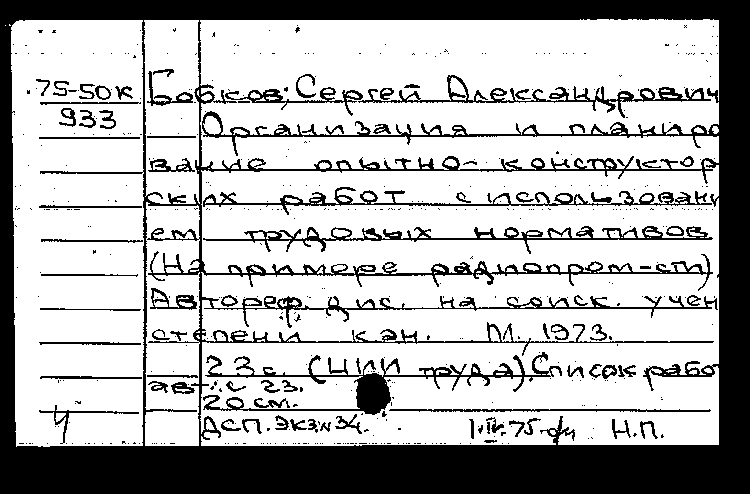 75-50к
933
Бобков, Сергей Александрович
Организация и планиро
вание опытно-конструктор
ских работ с использовани
ем трудовых нормативов
(На примере радиопром-сти).
Автореф. дис. на соиск. учен
степени кан. М., 1973.
23 с. (ЦНИИ труда). Список рабо
авт.: с 23.
20 см.
ДСП. Экз№34.
Н.П.
Ч